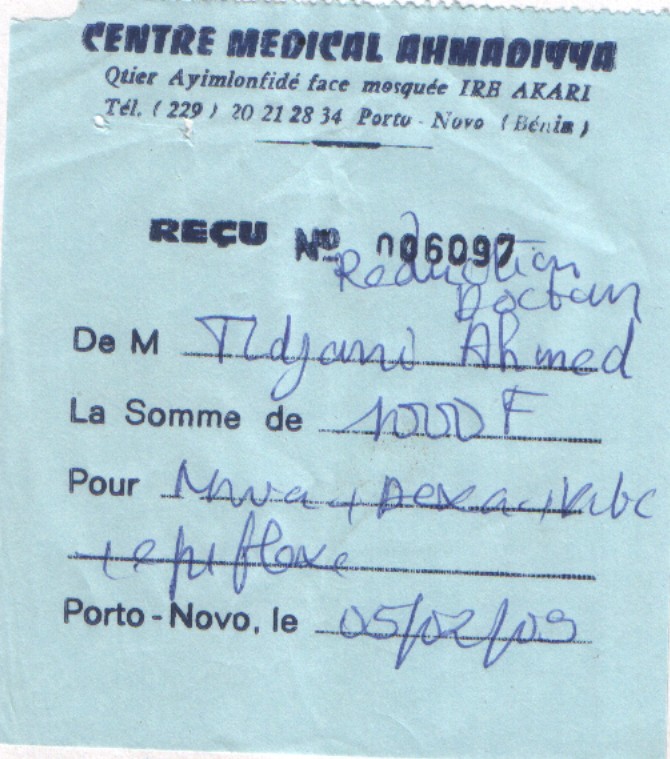 CENTRE MEDICAL AHMADIYYA
Qtier Ayimlonfidé face mosquée IRE AKARI
Tél. (229) 20 21 28 34 Porto - Novo (Bénin)
REÇU Nº 006097
Reduction
De M Tidjani Ahmed
La Somme de 1000 F
Pour
Porto-Novo, le 05/02/09